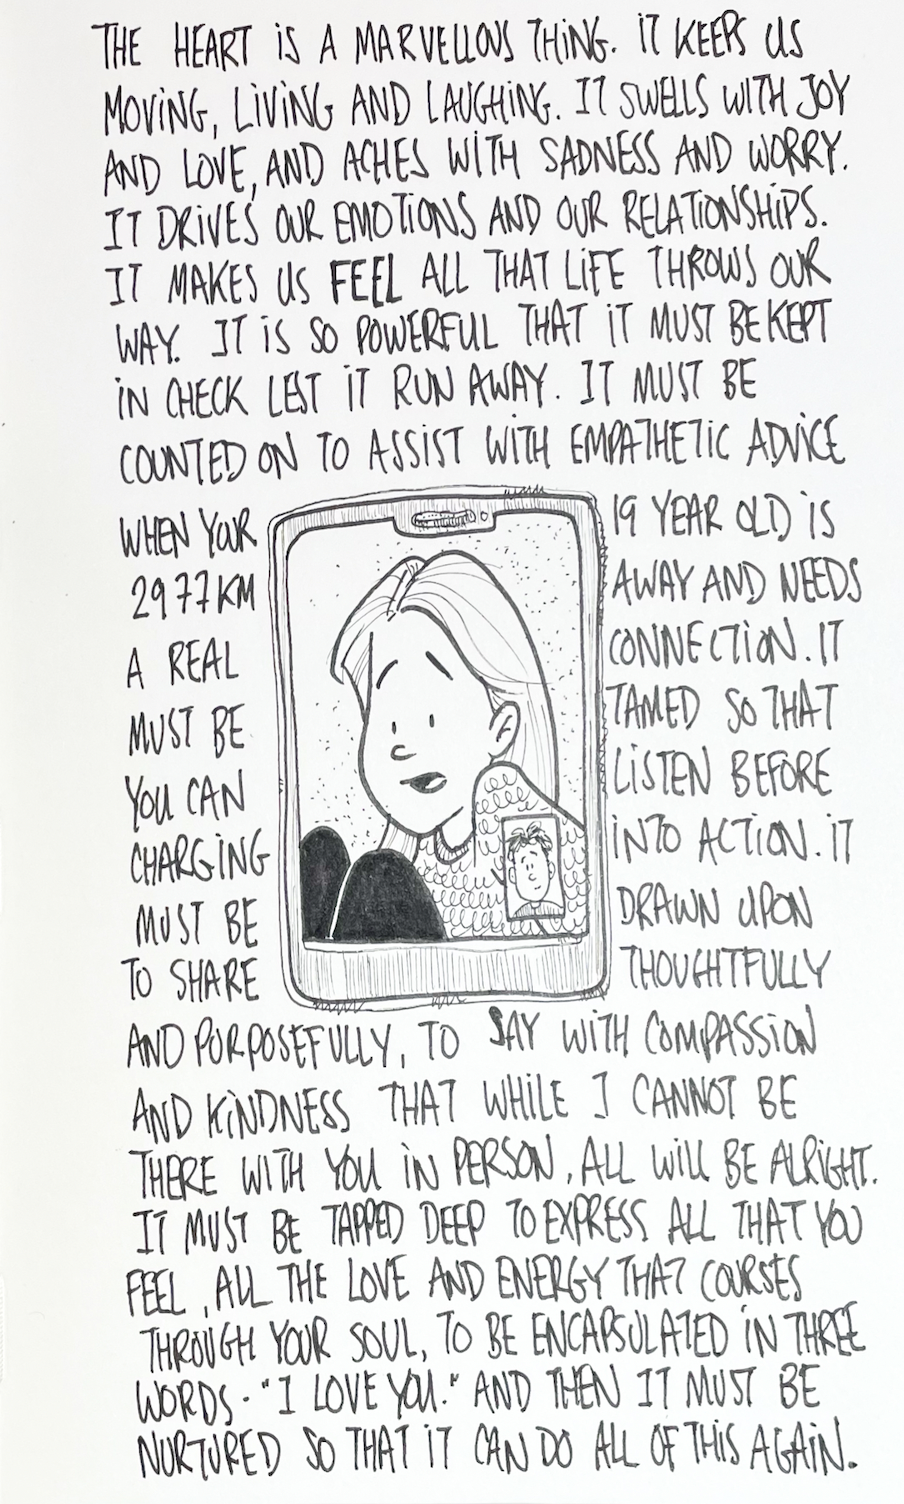 THE HEART IS A MARVELLOUS THING. IT KEEPS US
MOVING, LIVING AND LAUGHING. IT SWELLS WITH JOY
AND LOVE, AND ACHES WITH SADNESS AND WORRY.
IT DRIVES OUR EMOTIONS AND OUR RELATIONSHIPS.
IT MAKES US FEEL ALL THAT LIFE THROWS OUR
WAY. IT IS SO POWERFUL THAT IT MUST BE KEPT
IN CHECK LEST IT RUN AWAY. IT MUST BE
COUNTED ON TO ASSIST WITH EMPATHETIC ADVICE
WHEN YOUR 19 YEAR OLD IS
2977KM AWAY AND NEEDS
A REAL CONNECTION. IT
MUST BE TAMED SO THAT
YOU CAN LISTEN BEFORE
CHARGING INTO ACTION. IT
MUST BE DRAWN UPON
TO SHARE THOUGHTFULLY
AND PURPOSEFULLY, TO SAY WITH COMPASSION
AND KINDNESS THAT WHILE I CANNOT BE
THERE WITH YOU IN PERSON, ALL WILL BE ALRIGHT.
IT MUST BE TAPPED DEEP TO EXPRESS ALL THAT YOU
FEEL, ALL THE LOVE AND ENERGY THAT COURSES
THROUGH YOUR SOUL, TO BE ENCAPSULATED IN THREE
WORDS. "I LOVE YOU." AND THEN IT MUST BE
NURTURED SO THAT IT CAN DO ALL OF THIS AGAIN.